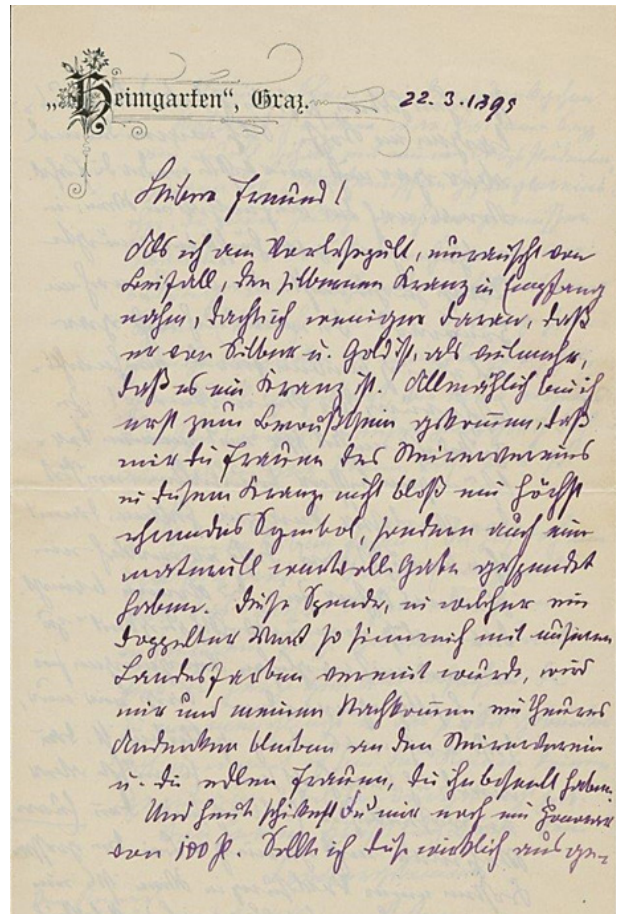 „Heimgarten“, Graz.
22. 3. 1895
Lieber Freund!
Als ich am Vorlesepult, umrauscht von
Beifall, den silbernen Kranz in Empfang
nahm, dacht ich weniger daran, daß
er von Silber u. Gold ist, als vielmehr,
daß es ein Kranz ist. Allmählich bin ich
erst zum Bewußtsein gekommen, daß
mir die Frauen des Steirervereins
in diesem Kranze nicht bloß ein höchst
ehrendes Symbol, sondern auch eine
materiell wertvolle Gabe gespendet
haben. Diese Spende, in welcher ein
doppelter Wert so sinnreich mit unseren
Landesfarben vereint wurde, wird
mir und meinen Nachkommen ein theures
Andenken bleiben an den Steirerverein
u. die edlen Frauen, die ihn beseelt haben.
Und heut schickest Du mir noch ein Honorar
von 100 fl. Sollte ich dies wirklich aus ge-